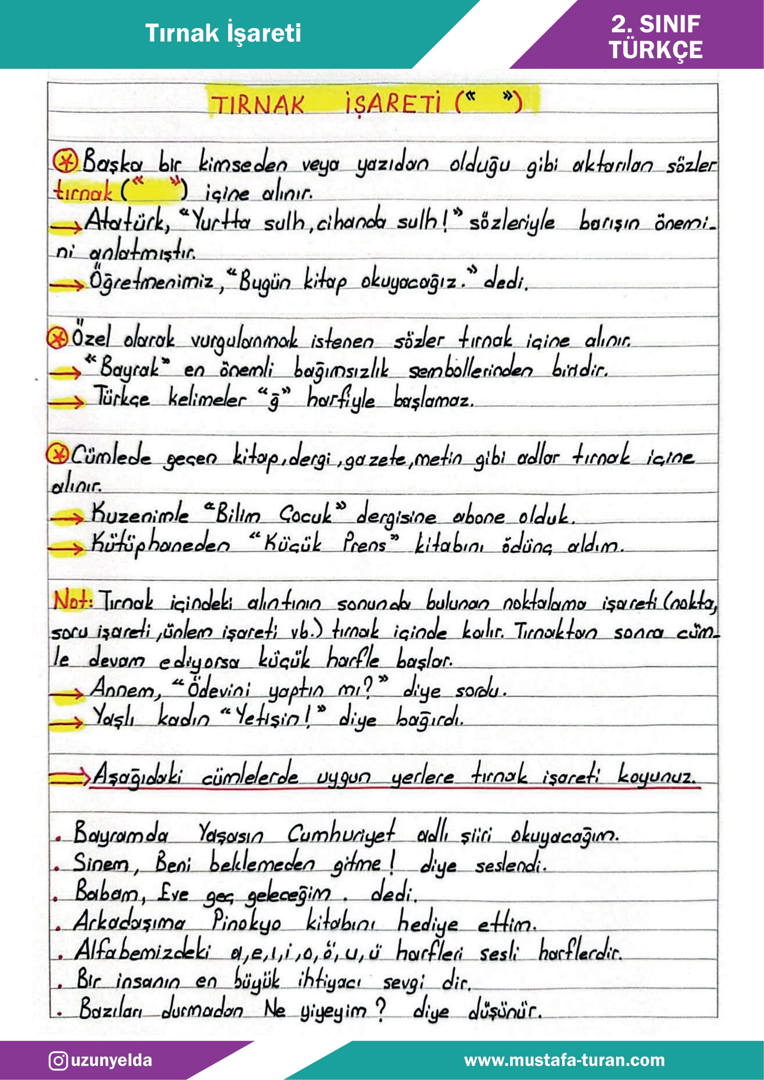 Tırnak İşareti
2. SINIF
TÜRKÇE
TIRNAK İŞARETİ (“ ”)
Başka bir kimseden veya yazıdan olduğu gibi aktarılan sözler
tırnak (“ ”) içine alınır.
→ Atatürk, “Yurtta sulh, cihanda sulh!” sözleriyle barışın önemi-
ni anlatmıştır.
→ Öğretmenimiz, “Bugün kitap okuyacağız.” dedi.
Özel olarak vurgulanmak istenen sözler tırnak içine alınır.
→ “Bayrak” en önemli bağımsızlık sembollerinden biridir.
→ Türkçe kelimeler “ğ” harfiyle başlamaz.
Cümlede geçen kitap, dergi, gazete, metin gibi adlar tırnak içine
alınır.
→ Kuzenimle “Bilim Çocuk” dergisine abone olduk.
→ Kütüphaneden “Küçük Prens” kitabını ödünç aldım.
Not: Tırnak içindeki alıntının sonunda bulunan noktalama işareti (nokta,
soru işareti, ünlem işareti vb.) tırnak içinde kalır. Tırnaktan sonra cüm-
le devam ediyorsa küçük harfle başlar.
→ Annem, “Ödevini yaptın mı?” diye sordu.
→ Yaşlı kadın “Yetişin!” diye bağırdı.
→ Aşağıdaki cümlelerde uygun yerlere tırnak işareti koyunuz.
• Bayramda Yaşasın Cumhuriyet adlı şiiri okuyacağım.
• Sinem, Beni beklemeden gitme! diye seslendi.
• Babam, Eve geç geleceğim. dedi.
• Arkadaşıma Pinokyo kitabını hediye ettim.
• Alfabemizdeki a,e,ı,i,o,ö,u,ü harfleri sesli harflerdir.
• Bir insanın en büyük ihtiyacı sevgi dir.
• Bazıları durmadan Ne yiyeyim? diye düşünür.
uzunyelda
www.mustafa-turan.com